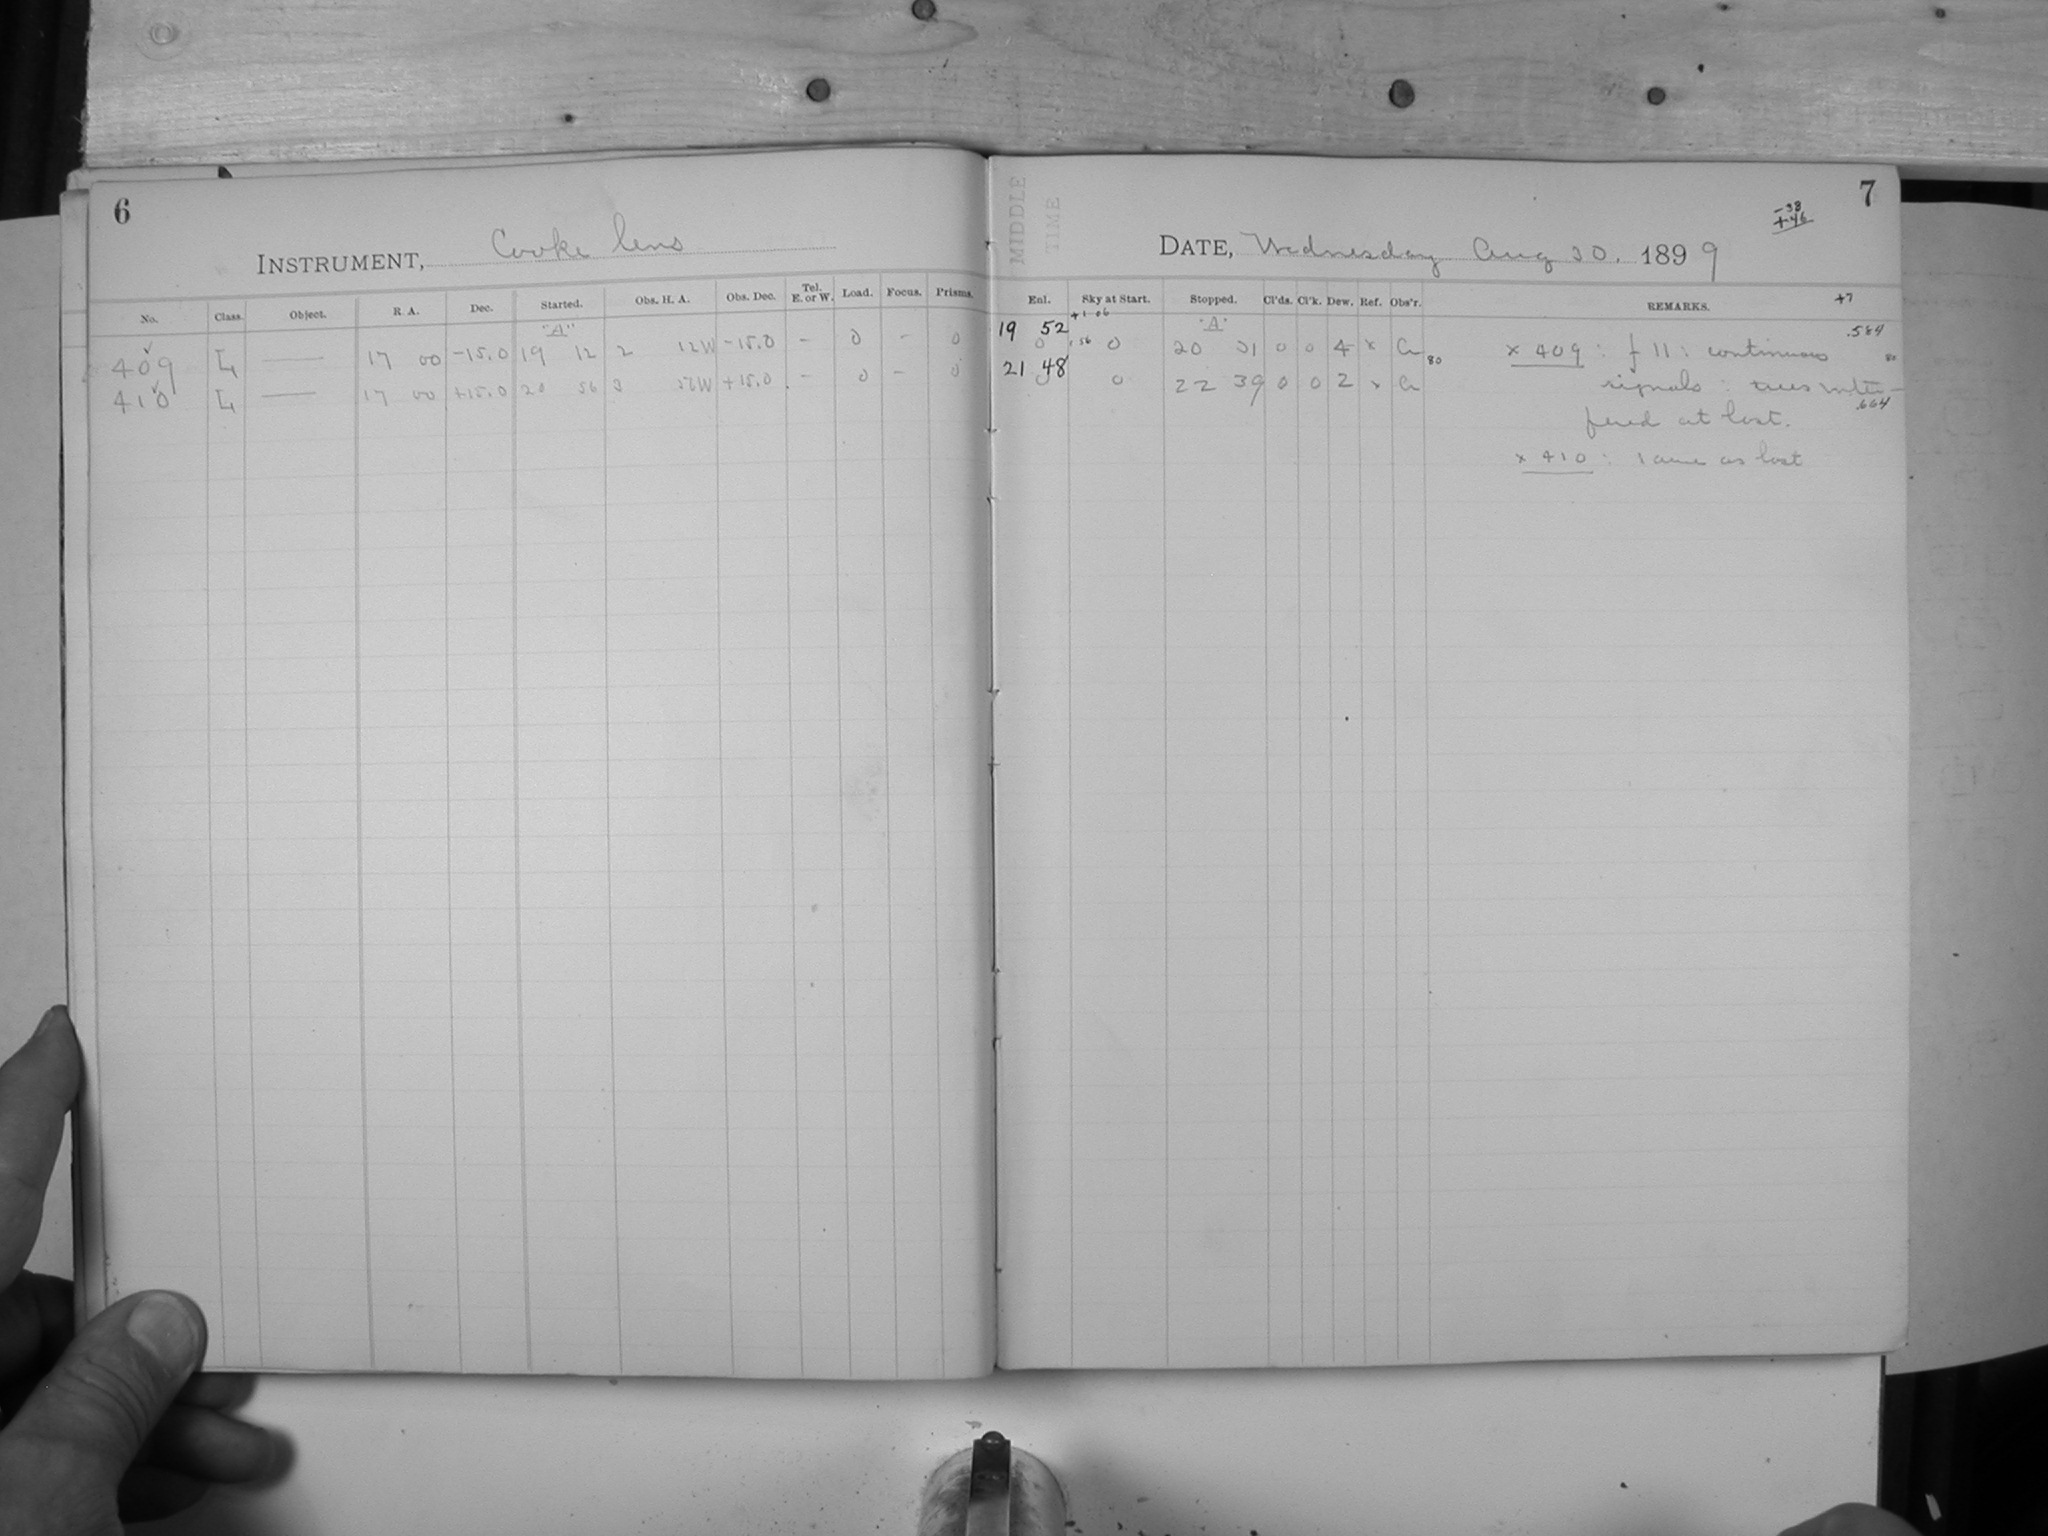 6
INSTRUMENT, Cooke lens
No. Class. Object. R. A. Dec. Started. Obs. H. A. Obs. Dec. Tel. E. or W. Load. Focus. Prisms.
"A"
409 L —— 17 00 -15.0 19 12 2 12W -15.0 - 0 - 0
410 L —— 17 00 +15.0 20 56 3 56W +15.0 - 0 - 0
MIDDLE
TIME
7
-38
+46
DATE, Wednesday Aug 30. 1899
Enl. Sky at Start. Stopped. Cl'ds. Cl'k. Dew. Ref. Obs'r. REMARKS. +7
+1 06 "A" .584
19 52 0 .56 0 20 31 0 0 4 x 80 x 409 : f 11 : continuous 80
21 48 0 0 22 39 0 0 2 x signals : trees inter-
.664
fered at last.
x 410 : same as last